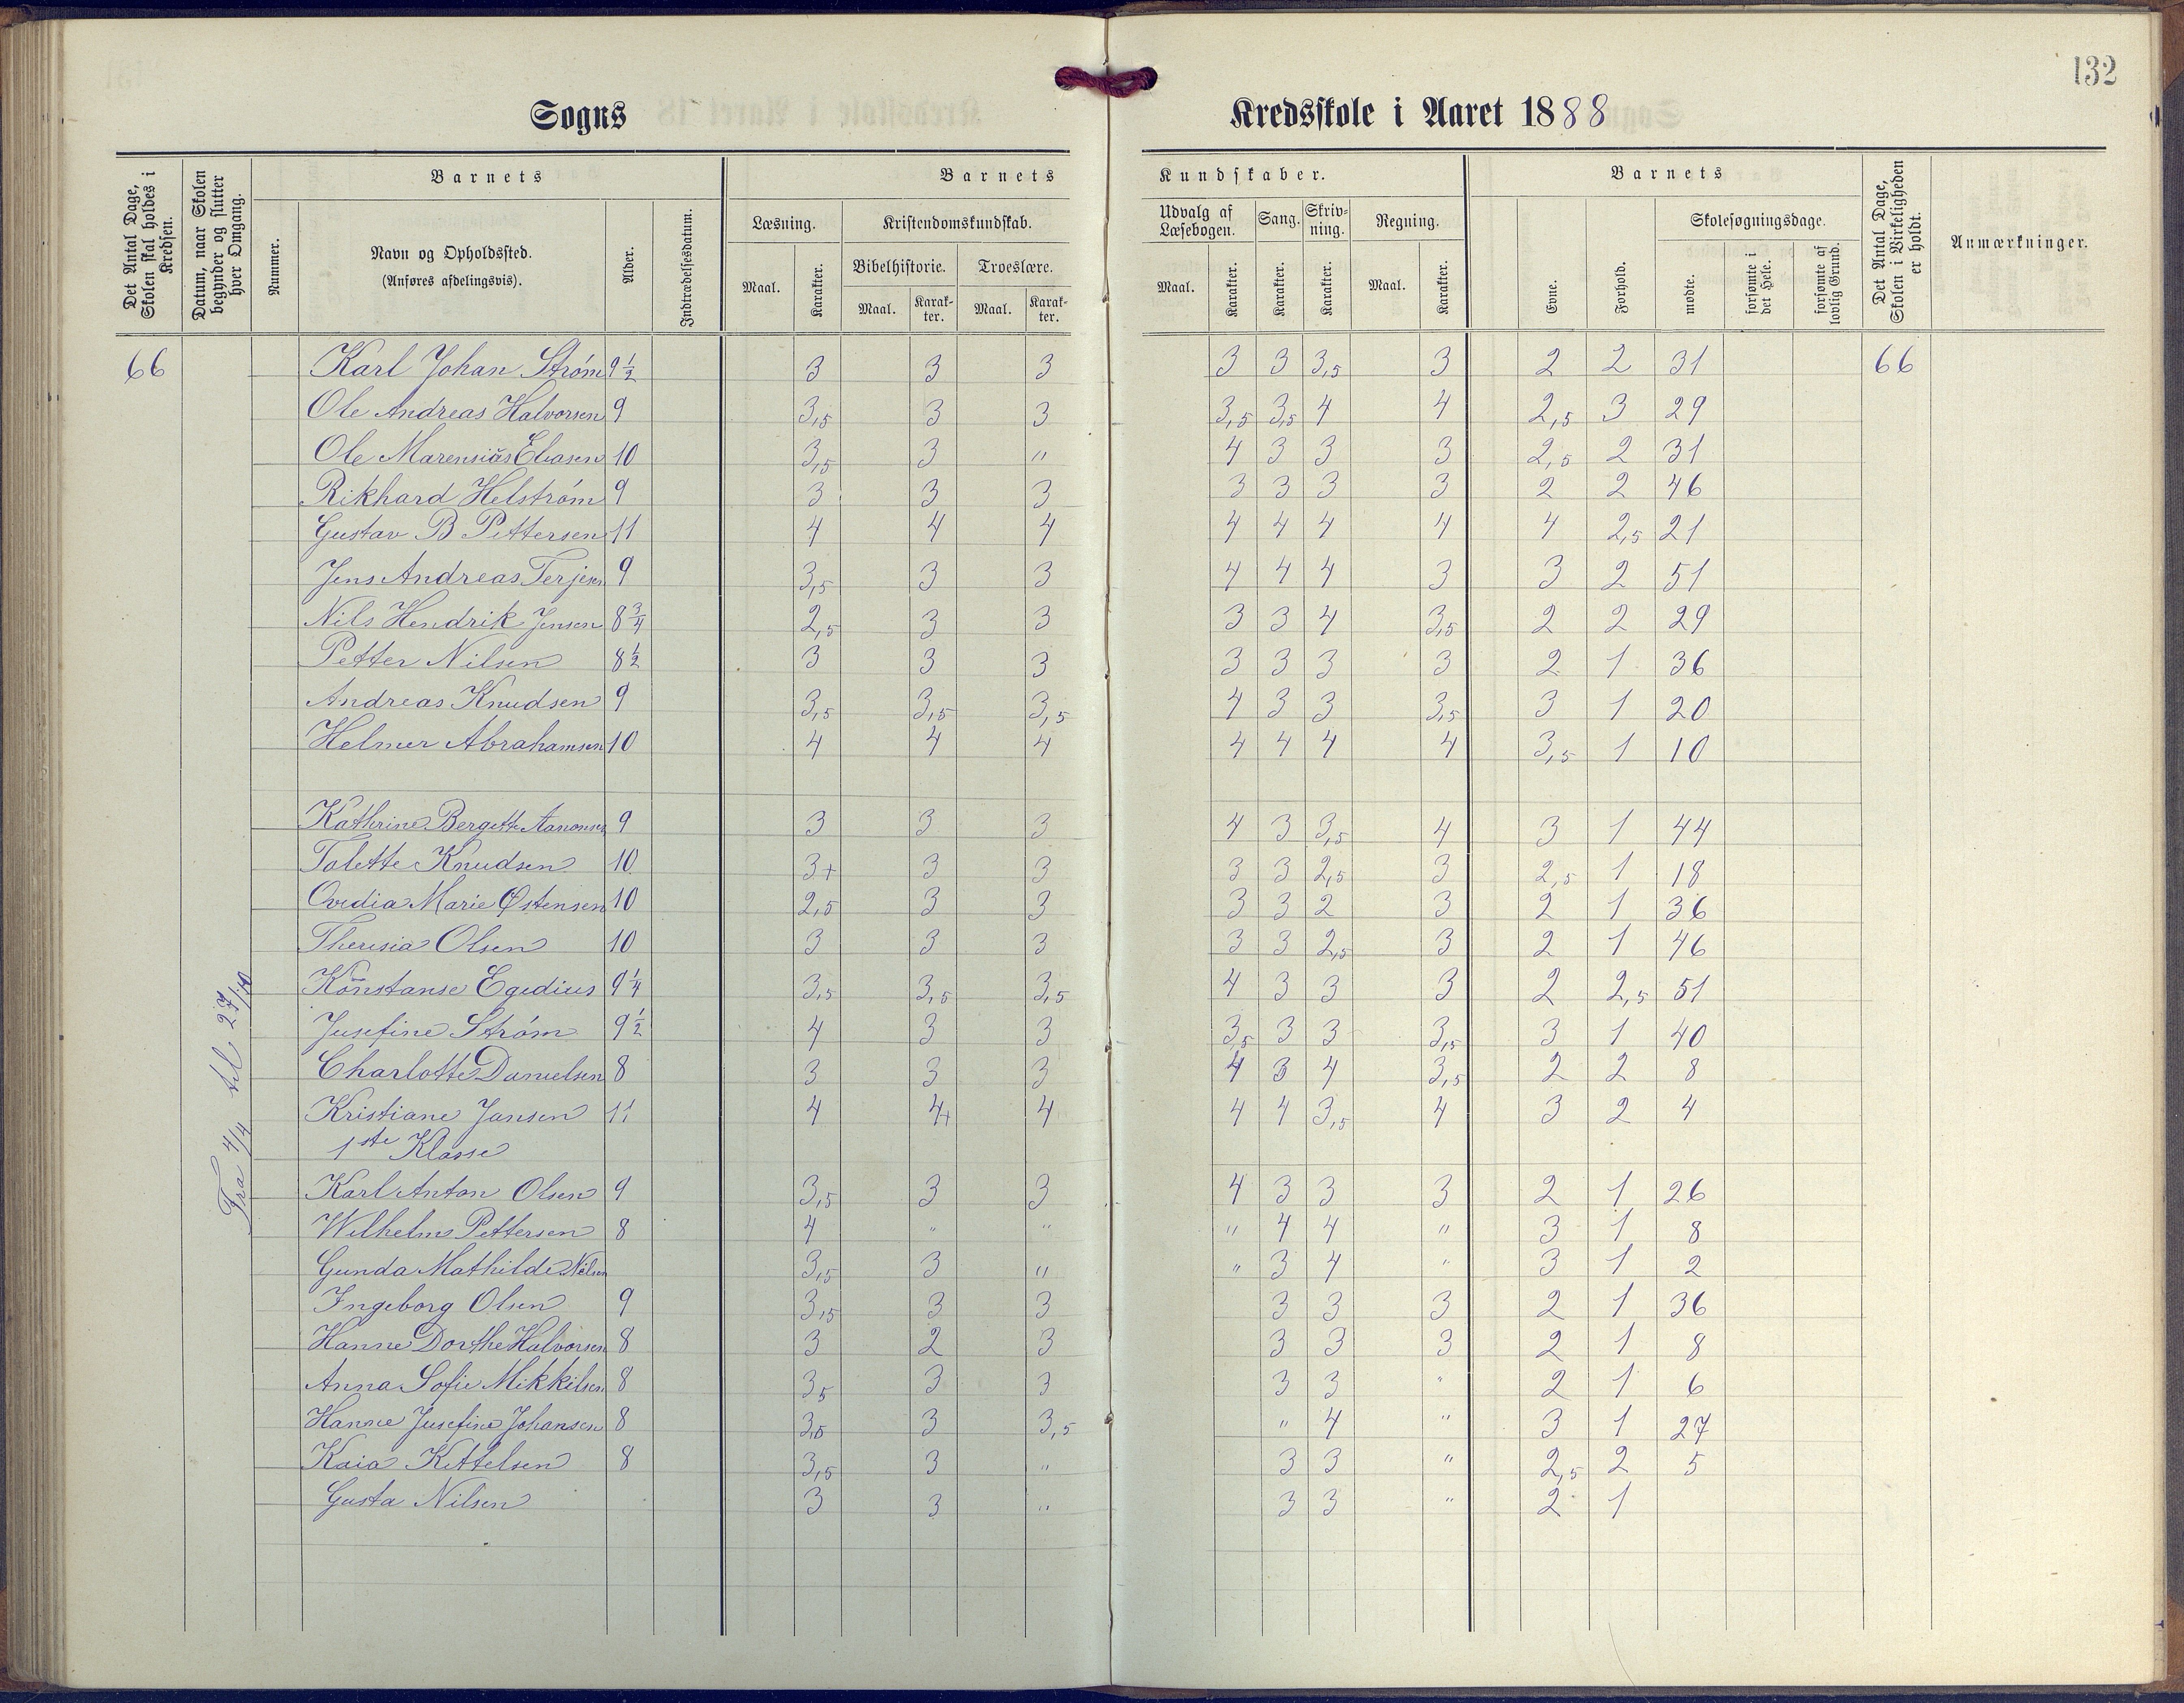 132
Sogns Kredsskole i Aaret 1888
Det Antal Dage, Skolen skal holdes i Kredsen.
Datum, naar Skolen begynder og slutter hver Omgang.
Nummer.
Barnets
Navn og Opholdssted.
(Anføres afdelingsvis).
Alder.
Indtrædelsesdatum.
Barnets Kundskaber.
Læsning.
Maal. Karakter.
Kristendomskundskab.
Bibelhistorie. Troeslære.
Maal. Karakter. Maal. Karakter.
Udvalg af Læsebogen.
Maal. Karakter.
Sang.
Karakter.
Skrivning.
Karakter.
Regning.
Maal. Karakter.
Barnets
Evne.
Forhold.
Skolesøgningsdage.
mødte.
forsømte i det Hele.
forsømte af lovlig Grund.
Det Antal Dage, Skolen i Virkeligheden er holdt.
Anmærkninger.
Fra 4/4 til 27/10
66 Karl Johan Strøm 9 1/2 3 3 3 3 3 3,5 3 2 2 31 66
Ole Andreas Halvorsen 9 3,5 3 3 3,5 3,5 4 4 2,5 3 29
Ole Marensius Eliasen 10 3,5 3 " 4 3 3 3 2,5 2 31
Rikhard Helstrøm 9 3 3 3 3 3 3 3 2 2 46
Gustav B Pettersen 11 4 4 4 4 4 4 4 4 2,5 21
Jens Andreas Terjesen 9 3,5 3 3 4 4 4 3 3 2 51
Nils Hendrik Jensen 8 3/4 2,5 3 3 3 3 4 3,5 2 2 29
Petter Nilsen 8 1/2 3 3 3 3 3 3 3 2 1 36
Andreas Knudsen 9 3,5 3,5 3,5 4 3 3 3,5 3 1 20
Helmer Abrahamsen 10 4 4 4 4 4 4 4 3,5 1 10
Kathrine Bergette Aanonsen 9 3 3 3 4 3 3,5 4 3 1 44
Talette Knudsen 10 3+ 3 3 3 3 2,5 3 2,5 1 18
Ovedia Marie Østensen 10 2,5 3 3 3 3 2 3 2 1 36
Theresia Olsen 10 3 3 3 3 3 2,5 3 2 1 46
Konstanse Egedius 9 1/4 3,5 3,5 3,5 4 3 3 3 2 2,5 51
Jusefine Strøm 9 1/2 4 3 3 3,5 3 3 3,5 3 1 40
Charlotte Danielsen 8 3 3 3 4 3 4 3,5 2 2 8
Kristiane Jansen 11 4 4+ 4 4 4 3,5 4 3 2 4
1ste Klasse
Karl Anton Olsen 9 3,5 3 3 4 3 3 3 2 1 26
Wilhelm Pettersen 8 4 " " " 4 4 " 3 1 8
Gunda Mathilde Nilsen 3,5 3 " " 3 4 " 3 1 2
Ingeborg Olsen 9 3,5 3 3 3 3 3 2 1 36
Hanne Dorthe Halvorsen 8 3 2 3 3 3 3 2 1 8
Anna Sofie Mikkilsen 8 3,5 3 3 3 3 " 2 1 6
Hanne Jusefine Johansen 8 3,5 3 3,5 " 4 " 3 1 27
Kaia Kettelsen 8 3,5 3 " 3 3 " 2,5 2 5
Gusta Nilsen 3 3 " 3 3 " 2 1